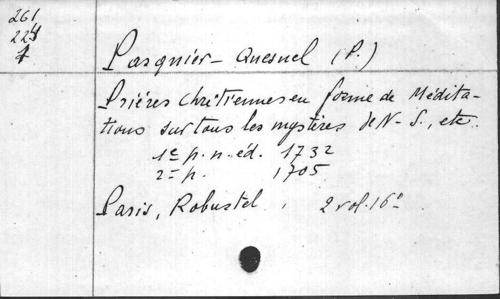 261
224
1
Pasquier-Quesnel (P.)
Prières chrétiennes en forme de Médita-
tions sur tous les mystères de N-S., etc.
1e p. n. éd. 1732
2= p. 1705
Paris, Robustel, 2 vol. 16°